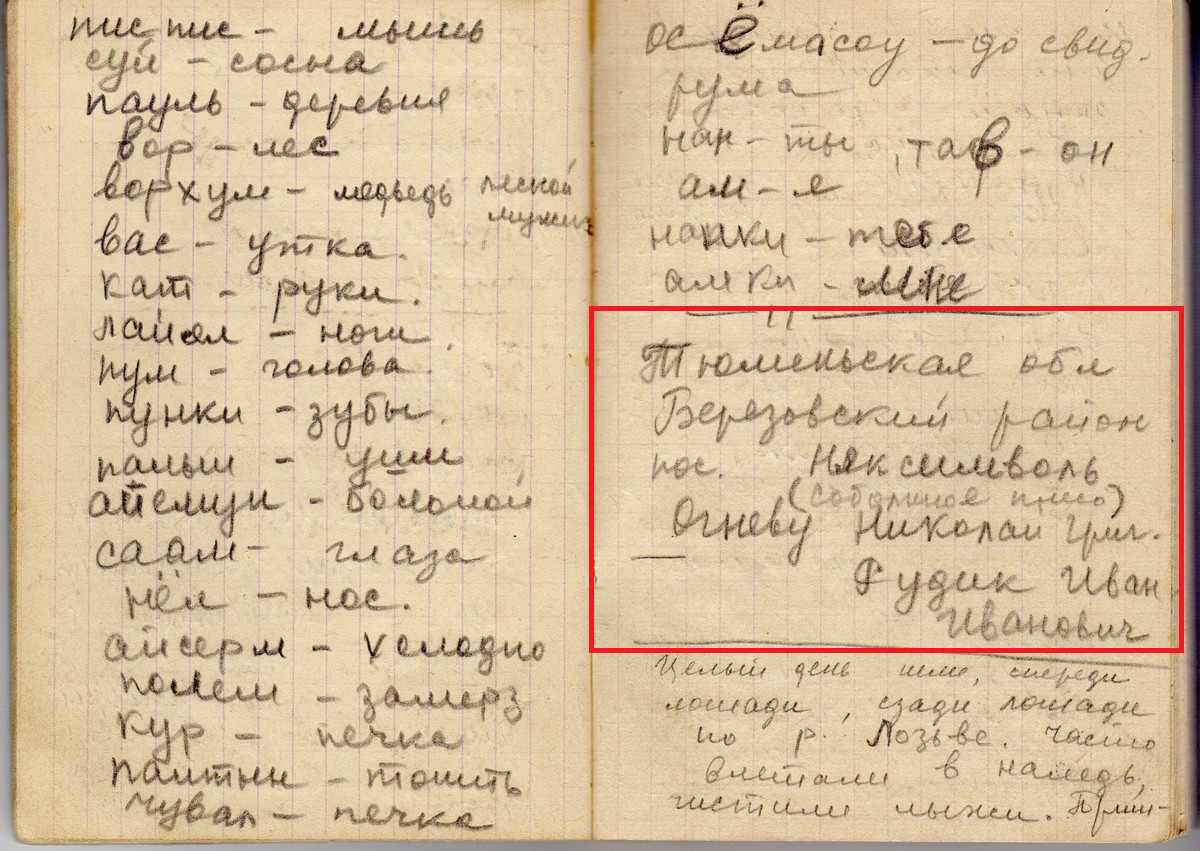 пис пис - мышь
суй - сосна
пауль - деревня
вор - лес
ворхум - медьведь лесной
мужик
вас - утка.
кат - руки.
лайял - ноги.
пум - голова.
пунки - зубы.
палыш - уши
айемши - больной
саам - глаза
нёл - нос.
айсерм - холодно
полем - замерз
кур - печка
палтын - топить
чувал - печка
ос ёмасоу - до свид.
рума
нан - ты, тав - он
ам - я
нанки - тебе
амки - мне
Тюменьская обл
Березовский район
пос. Няксимволь
(соболиное
Огневу Николай Григ.
Рудик Иван
Иванович
Целый день шли, спереди
лошади, сзади лошади
по р. Лозьве. Часто
влетали в наледь,
чистили лыжи. Прим-